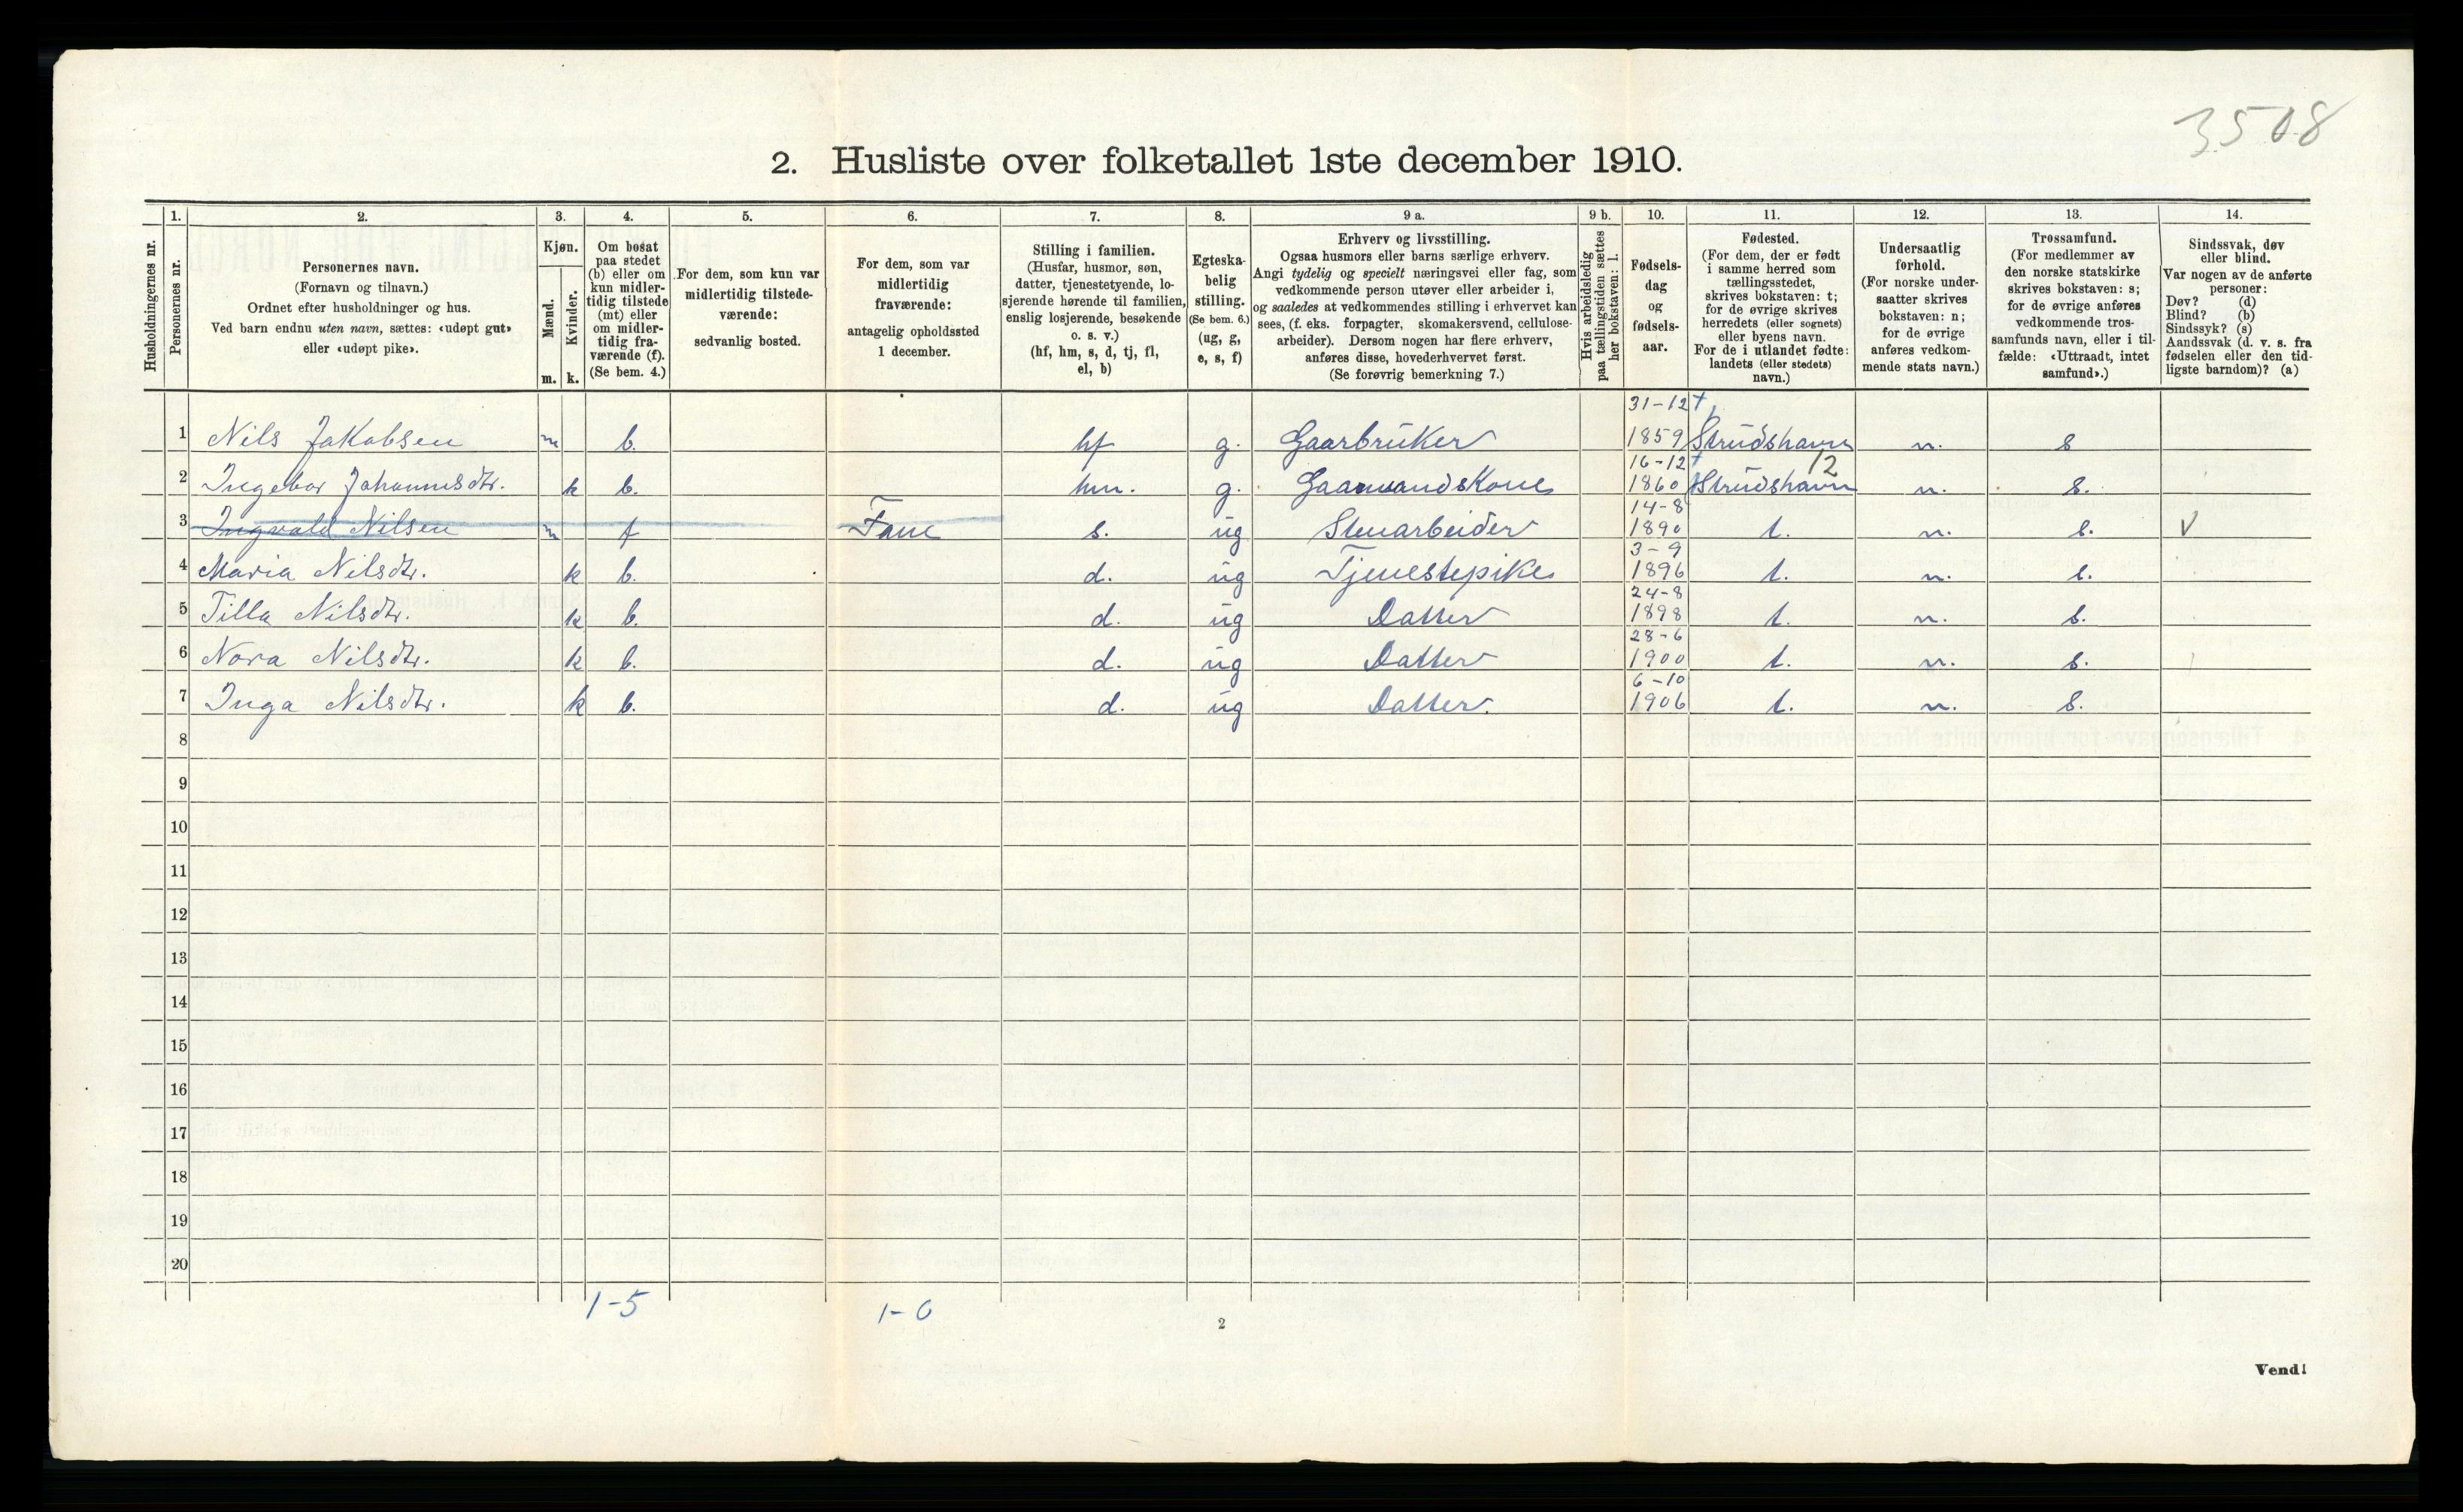 3508
2. Husliste over folketallet 1ste december 1910.
1. 2. 3. 4. 5. 6. 7. 8. 9 a. 9 b. 10. 11. 12. 13. 14.
Husholdningernes nr.
Personernes nr.
Personernes navn.
(Fornavn og tilnavn.)
Ordnet efter husholdninger og hus.
Ved barn endnu uten navn, sættes: «udøpt gut»
eller «udøpt pike».
Kjøn.
Mænd.
Kvinder.
m. k.
Om bosat
paa stedet
(b) eller om
kun midler-
tidig tilstede
(mt) eller
om midler-
tidig fra-
værende (f).
(Se bem. 4.)
For dem, som kun var
midlertidig tilstede-
værende:
sedvanlig bosted.
For dem, som var
midlertidig
fraværende:
antagelig opholdssted
1 december.
Stilling i familien.
(Husfar, husmor, søn,
datter, tjenestetyende, lo-
sjerende hørende til familien,
enslig losjerende, besøkende
o. s. v.)
(hf, hm, s, d, tj, fl,
el, b)
Egteska-
belig
stilling.
(Se bem. 6.)
(ug, g,
e, s, f)
Erhverv og livsstilling.
Ogsaa husmors eller barns særlige erhverv.
Angi tydelig og specielt næringsvei eller fag, som
vedkommende person utøver eller arbeider i,
og saaledes at vedkommendes stilling i erhvervet kan
sees, (f. eks. forpagter, skomakersvend, cellulose-
arbeider). Dersom nogen har flere erhverv,
anføres disse, hovederhvervet først.
(Se forøvrig bemerkning 7.)
Hvis arbeidsledig
paa tællingstiden sættes
her bokstaven: l.
Fødsels-
dag
og
fødsels-
aar.
Fødested.
(For dem, der er født
i samme herred som
tællingsstedet,
skrives bokstaven: t;
for de øvrige skrives
herredets (eller sognets)
eller byens navn.
For de i utlandet fødte:
landets (eller stedets)
navn.)
Undersaatlig
forhold.
(For norske under-
saatter skrives
bokstaven: n;
for de øvrige
anføres vedkom-
mende stats navn.)
Trossamfund.
(For medlemmer av
den norske statskirke
skrives bokstaven: s;
for de øvrige anføres
vedkommende tros-
samfunds navn, eller i til-
fælde: «Uttraadt, intet
samfund».)
Sindssvak, døv
eller blind.
Var nogen av de anførte
personer:
Døv? (d)
Blind? (b)
Sindssyk? (s)
Aandssvak (d. v. s. fra
fødselen eller den tid-
ligste barndom)? (a)
31-12 t
1 Nils Jakobsen m b. hf g. Gaarbruker 1859 Strudshavn n. s
16-12 t 12
2 Ingebor Johannisdtr. k b. hm. g. Gaarmandskone 1860 Strudshavn n. s.
14-8
3 Ingvald Nilsen m f Fane s. ug Stenarbeider 1890 t. n. s. V
3-9
4 Maria Nilsdtr. k b. d. ug Tjenestepike 1896 t. n. s.
24-8
5 Tilla Nilsdtr. k b. d. ug Datter 1898 t. n. s.
28-6
6 Nora Nilsdtr. k b. d. ug Datter 1900 t. n. s.
6-10
7 Inga Nilsdtr. k b. d. ug Datter. 1906 t. n. s.
8
9
10
11
12
13
14
15
16
17
18
19
20
1-5 1-0
2
Vend!